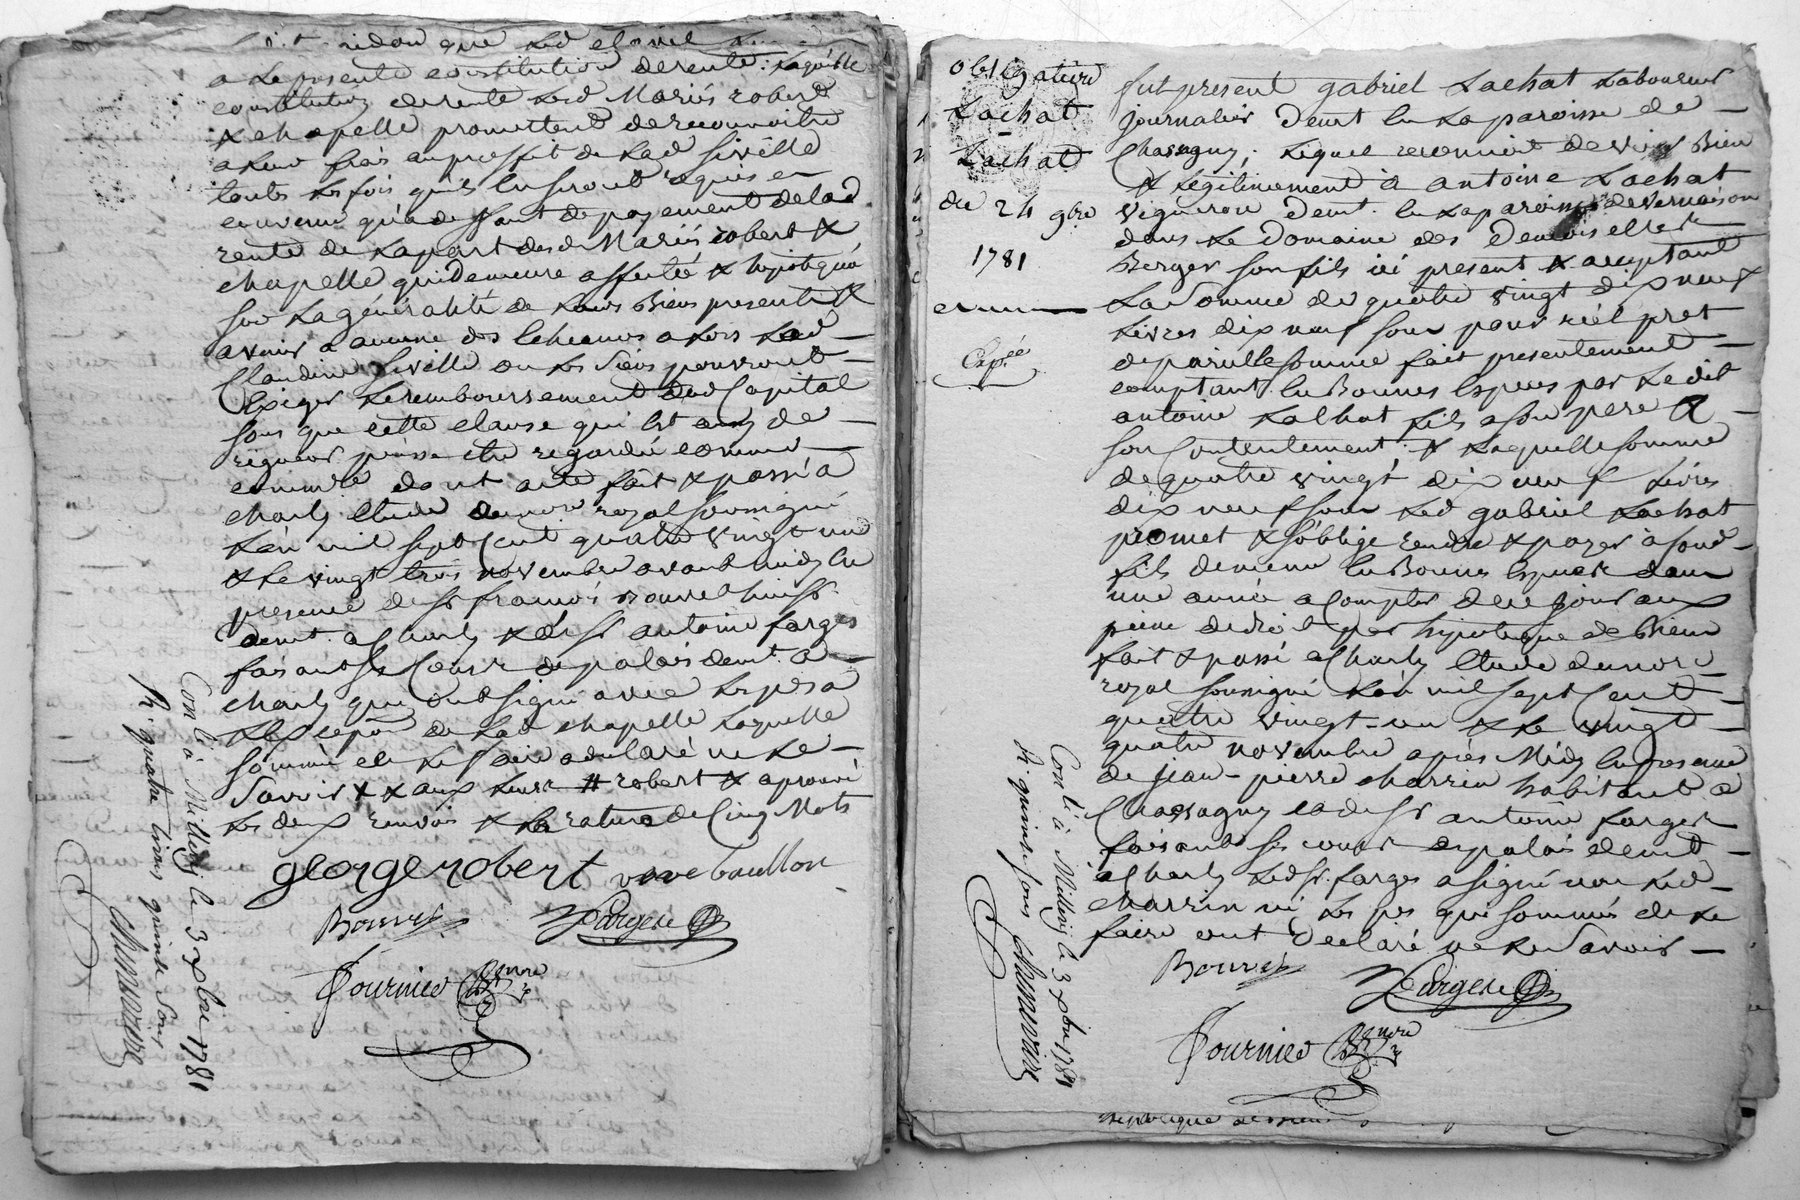 a la presente constitution de rente : laquelle
constitution de rente lesd Mariés robert
& chapelle promettent de reconnoitre
a leur frais au proffit de lad sivelle
touts les fois quils en seront requis en
convenu qu'a deffaut de payement de lad
rente de la part desd Mariés robert &
chapelle qui demeure affectée & hipotequé
sur la généralité de leurs Biens presents &
avenir a aucune des Echeances alors lad
Claudine Sivelle ou les siens pourront
Exiger le remboursement dud Capital
sans que cette clause qui Est aux de
rigueur puisse etre regardée comme
comminatoire dont acte fait & passé a
charly Etude du nore royal soussigné
L'an mil sept Cent quatre vingt un
& Le vingt trois novembre avant midy En
presence de sr francois Bouvre
demt a Charly & de sr antoine farges
faisant ses Cours de palais demt a
charly qui ont signé avec les parties
Excepté de lad chapelle laquelle
sommée de le faire a declaré ne le
savoir & robert & aprouvé
les deux renvois & la rature de Cinq Mots
george robert veve bouillon
Bouvre
Farges
Fournier Nore
Conlé à Millery le 3 xbre 1781
R. quatre livres quinze sous
obligation
Lachat
à
Lachat
du 24 9bre
1781
Expée
fut present gabriel Lachat Laboureur
journalier Demt En La paroisse de
Chassagny, Lequel reconnoit devoir Bien
& Légitimement à antoine Lachat
vigneron demt En La paroisse de vernaison
dans Le Domaine des Demoiselles
Berger son fils ici present & acceptant
La somme de quatre vingt dix neuf
Livres dix neuf sous pour réel pret
de pareille somme fait presentement
comptant En Bonnes Especes par Le dit
antoine Lachat fils a son pere a
son Contentement ; & Laquelle somme
de quatre vingt dix neuf Livres
dix neuf sous Led gabriel Lachat
promet & s'oblige rendre & payer à sond
fils demême En Bonnes Especes dans
une année a Compter de ce jour aux
peine de droit par hipoteque de Biens
fait & passé a Charly Etude du nore
royal soussigné L'an mil sept Cent
quatre vingt-un & Le vingt
quatre novembre après Midy En presence
de jean-pierre charrin habitant a
Chassagny et de sr antoine farges
faisant ses cours de palais demt
a Charly Led sr farges a signé non Led
charrin ni Les pes qui sommés de Le
faire ont Declaré ne Le savoir
Bouvre
Farges
Fournier Nore
Conlé à Millery le 3 xbre 1781
R. quinze sous